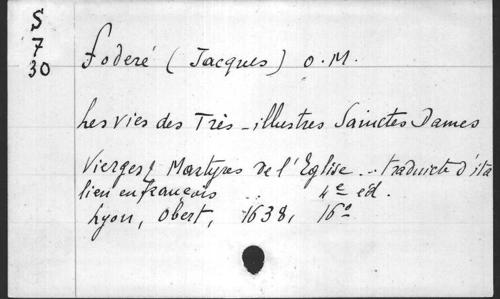 S
7
30
Foderé (Jacques) O.M.
Les Vies des Très-illustres Sainctes Dames
Vierges & Martyres de l'Eglise .. traduicte d'ita
lien en françois .. 4e éd.
Lyon, Obert, 1638, 16o